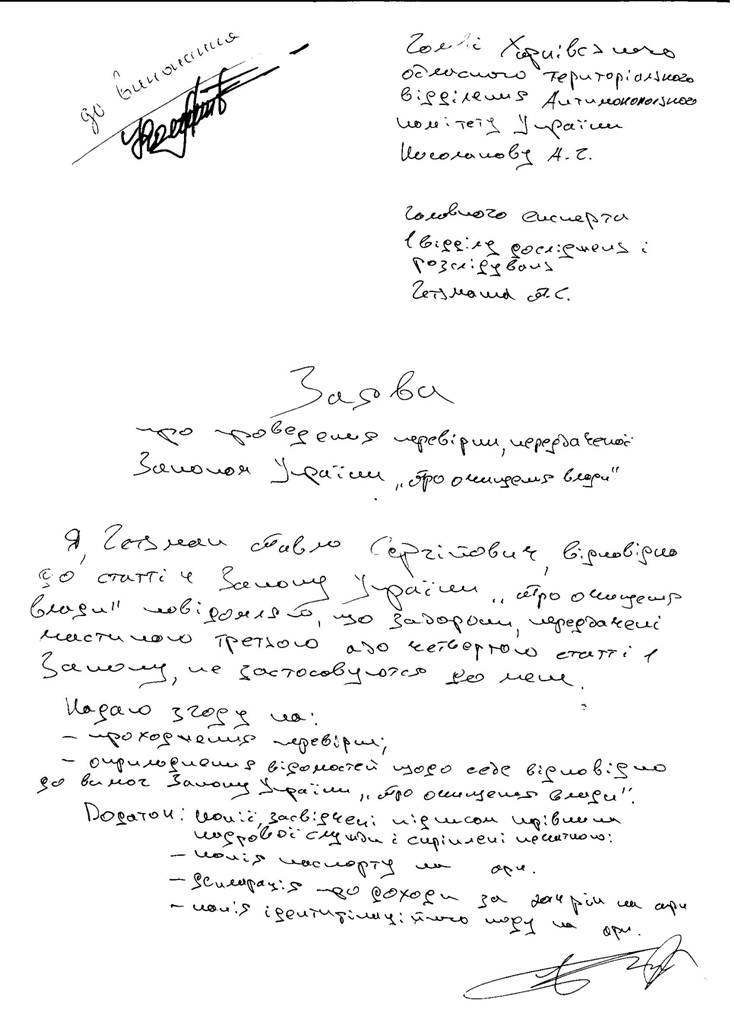 до виконання
Голові Харківського
обласного територіального
відділення Антимонопольного
комітету України
А.Г.
головного експерта
1 відділу досліджень і
розслідувань
Гетьмана П.С.
Заява
про проведення перевірки, передбаченої
Законом України „Про очищення влади"
Я, Гетьман Павло Сергійович, відповідно
до статті 4 Закону України „Про очищення
влади" повідомляю, що заборони, передбачені
частиною третьою або четвертою статті 1
Закону, не застосовуються до мене.
Надаю згоду на:
– проходження перевірки;
– оприлюднення відомостей щодо себе відповідно
до вимог Закону України „Про очищення влади".
Додаток: копії, засвідчені підписом керівника
кадрової служби і скріплені печаткою:
– копія паспорту на арк.
– декларація про доходи за рік на арк
– копія ідентифікаційного коду на арк.